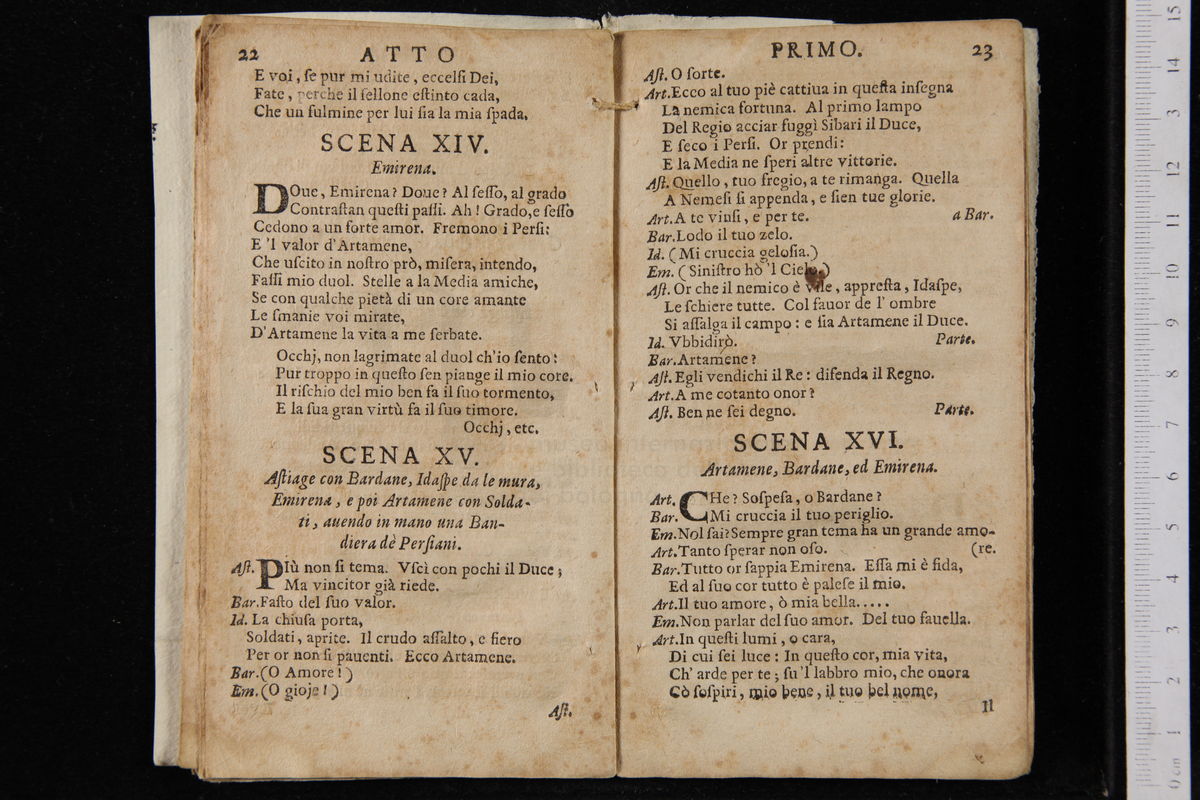 22 ATTO
E voi, ſe pur mi udite, eccelſi Dei,
Fate, perche il fellone eſtinto cada,
Che un fulmine per lui ſia la mia ſpada.
SCENA XIV.
Emirena.
DOue, Emirena? Doue? Al ſeſſo, al grado
Contraſtan queſti paſſi. Ah! Grado, e ſeſſo
Cedono a un forte amor. Fremono i Perſi:
E 'l valor d'Artamene,
Che uſcito in noſtro prò, miſera, intendo,
Faſſi mio duol. Stelle a la Media amiche,
Se con qualche pietà di un core amante
Le ſmanie voi mirate,
D'Artamene la vita a me ſerbate.
Occhj, non lagrimate al duol ch'io ſento:
Pur troppo in queſto ſen piange il mio core.
Il riſchio del mio ben fa il ſuo tormento,
E la ſua gran virtù fa il ſuo timore.
Occhj, etc.
SCENA XV.
Aſtiage con Bardane, Idaſpe da le mura,
Emirena, e poi Artamene con Solda-
ti, auendo in mano una Ban-
diera dè Perſiani.
Aſt. PIù non ſi tema. Vſcì con pochi il Duce;
Ma vincitor già riede.
Bar. Faſto del ſuo valor.
Id. La chiuſa porta,
Soldati, aprite. Il crudo aſſalto, e fiero
Per or non ſi pauenti. Ecco Artamene.
Bar. (O Amore!)
Em. (O gioje!)
Aſt.
PRIMO. 23
Aſt. O forte.
Art. Ecco al tuo piè cattiua in queſta inſegna
La nemica fortuna. Al primo lampo
Del Regio acciar fuggì Sibari il Duce,
E ſeco i Perſi. Or prendi:
E la Media ne ſperi altre vittorie.
Aſt. Quello, tuo fregio, a te rimanga. Quella
A Nemeſi ſi appenda, e ſien tue glorie.
Art. A te vinſi, e per te. a Bar.
Bar. Lodo il tuo zelo.
Id. (Mi cruccia geloſia.)
Em. (Siniſtro hò 'l Cielo.)
Aſt. Or che il nemico è vile, appreſta, Idaſpe,
Le ſchiere tutte. Col fauor de l' ombre
Si aſſalga il campo: e ſia Artamene il Duce.
Id. Vbbidirò. Parte.
Bar. Artamene?
Aſt. Egli vendichi il Re: difenda il Regno.
Art. A me cotanto onor?
Aſt. Ben ne ſei degno. Parte.
SCENA XVI.
Artamene, Bardane, ed Emirena.
Art. CHe? Soſpeſa, o Bardane?
Bar. Mi cruccia il tuo periglio.
Em. Nol ſai? Sempre gran tema ha un grande amo-
Art. Tanto ſperar non oſo. (re.
Bar. Tutto or ſappia Emirena. Eſſa mi è fida,
Ed al ſuo cor tutto è paleſe il mio.
Art. Il tuo amore, ò mia bella.....
Em. Non parlar del ſuo amor. Del tuo fauella.
Art. In queſti lumi, o cara,
Di cui ſei luce: In queſto cor, mia vita,
Ch' arde per te; ſu 'l labbro mio, che onora
Cò ſoſpiri, mio bene, il tuo bel nome,
Il